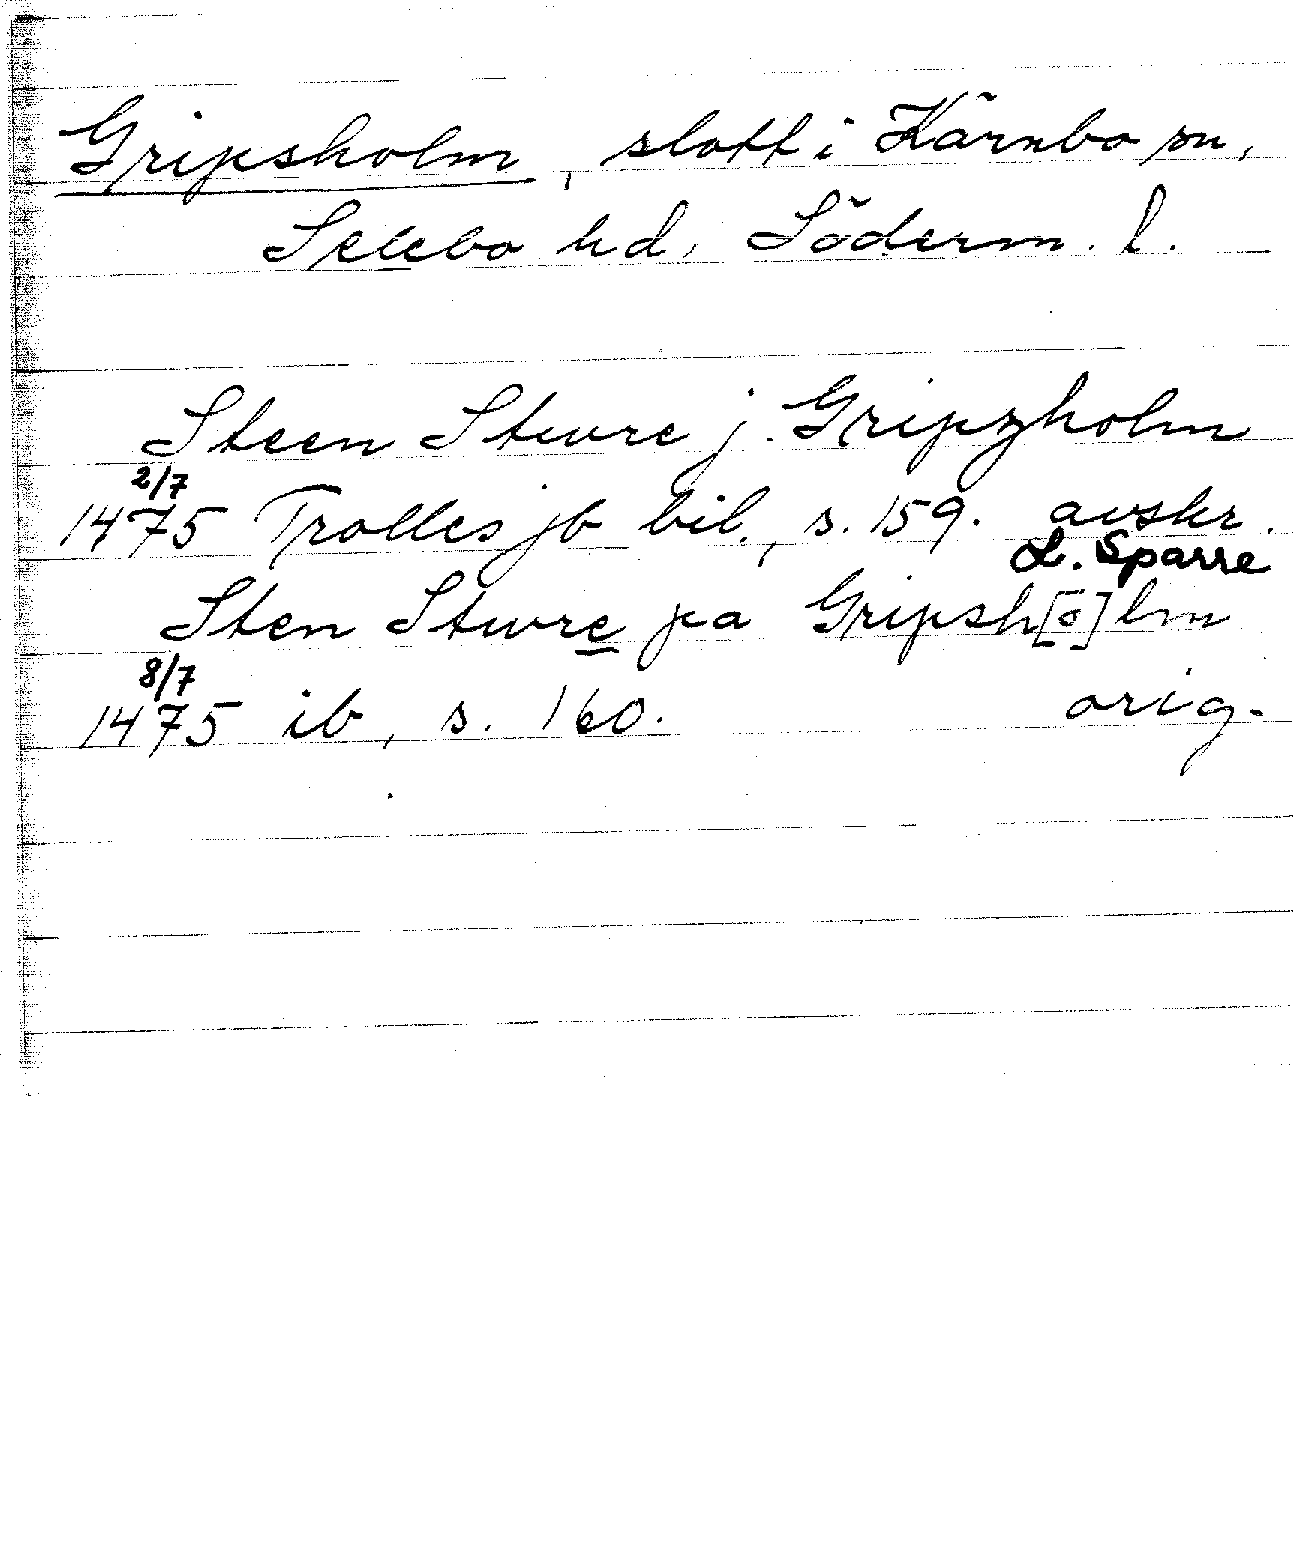 Gripsholm, slott i Kärnbo sn,
Selebo hd, Söderm. l.
Steen Stwre j Gripzholm
2/7
1475 Trolles jb bil., s. 159. avskr.
L. Sparre
Sten Stwre pa Gripsh[o]lm
8/7
1475 ib, s. 160. orig.